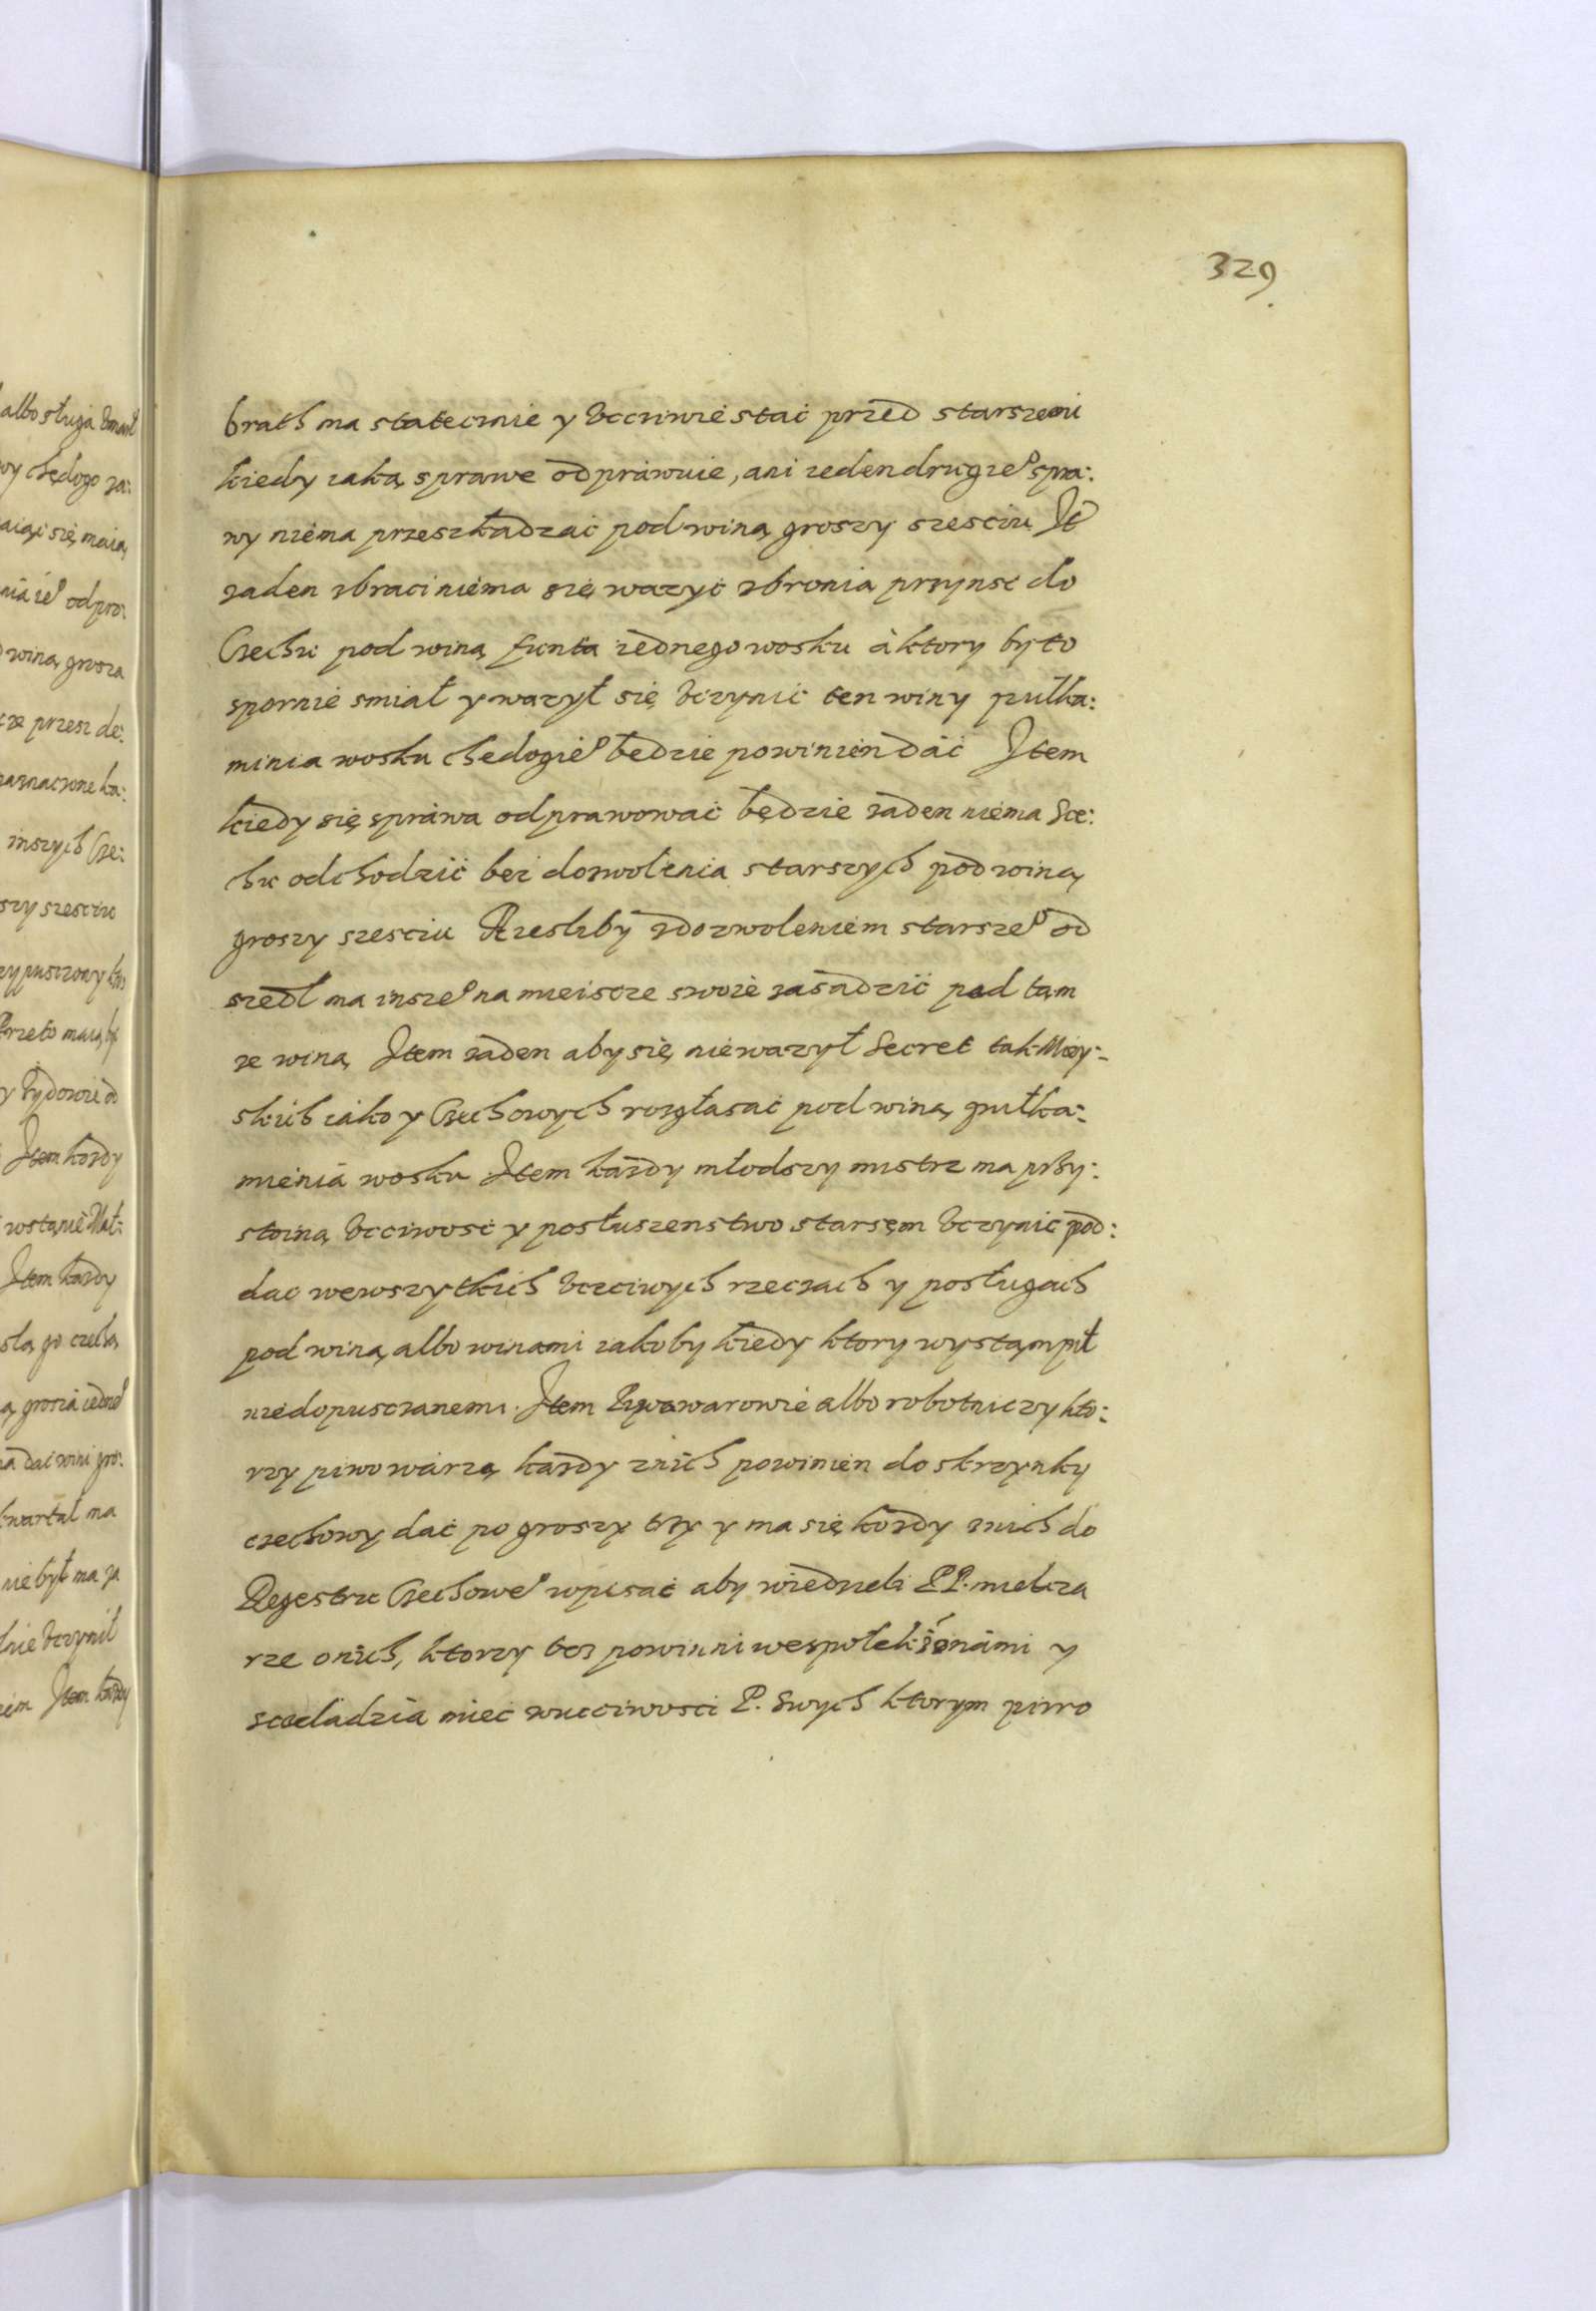 329
brath ma statecznie y Vccziwie stać przed starszemi
kiedy iaką sprawe odprawuie, ani ieden drugie° spra:
wy niema przeszkadzać pod winą groszy szesciu Jt
zaden zbraci niema się wazyć zbronia przynsc do
Czechu pod winą funta iednego wosku à ktory by to
spornie smiał y wazył się Vczynić ten winy pułka:
minia wosku chedogie° będzie powinien dać Jtem
kiedy się sprawa odprawować będzie zaden niema Sce:
chu odchodzić bez dozwolenia starszych pod winą
groszy szesciu A iesliby zdozwoleniem starsze° od
szedl ma insze° na mieiscze swoie zasadzić pod tąm
ze winą Jtem zaden aby się niewazył Secret tak Miey:
skich iako y Czechowych rozgłasać pod winą pułka:
mienia wosku Jtem kazdy młodszy mistrz ma przy:
stoiną Vcciwosć y posłuszenstwo starsęm Vczynic pod:
dac wewszytkich Vczciwych rzeczach y posługach
pod winą albo winami iakoby kiedy ktory wystąmpił
niedopusczanemi. Jtem Piwowarowie albo robotniczy kto:
rzy piwo warzą kazdy znich powinien do skrzynky
czechowy dać po groszy trzy y ma się kozdy znich do
Regestru Czechowe° wpisać aby wiedzieli PP. mielcza
rze onich, ktorzy tez powinni wespołek żonámi y
sceladzia mieć wucciwosci P. Swych ktorym piwo
albo sługa
wy chędogo za:
aiąci się maią
nia ie° odpra:
winą grosza
ze przesz de:
naznaczone ka:
inszych Cze:
szy szesciu
zypuszczony
Przeto maią
y Zydowie
Jtem kozdy
wstąnie
Jtem kazdy
slą go czecha
ą grosza iedne°
ma dać wini gro:
kwartał ma
nie był ma za
Vczynil
Jtem kazdy